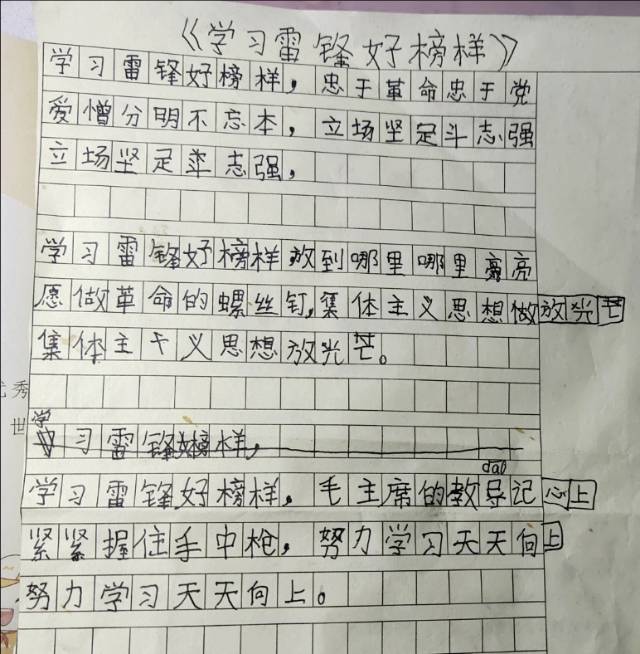 《学习雷锋好榜样》
学习雷锋好榜样，忠于革命忠于党
爱憎分明不忘本，立场坚定斗志强
立场坚定志强，
学习雷锋好榜样放到哪里哪里亮
愿做革命的螺丝钉,集体主义思想做放光芒
集体主义思想放光芒。
学习雷锋榜样，
dao
学习雷锋好榜样，毛主席的教导记心上
紧紧握住手中枪，努力学习天天向上
努力学习天天向上。
秀
世